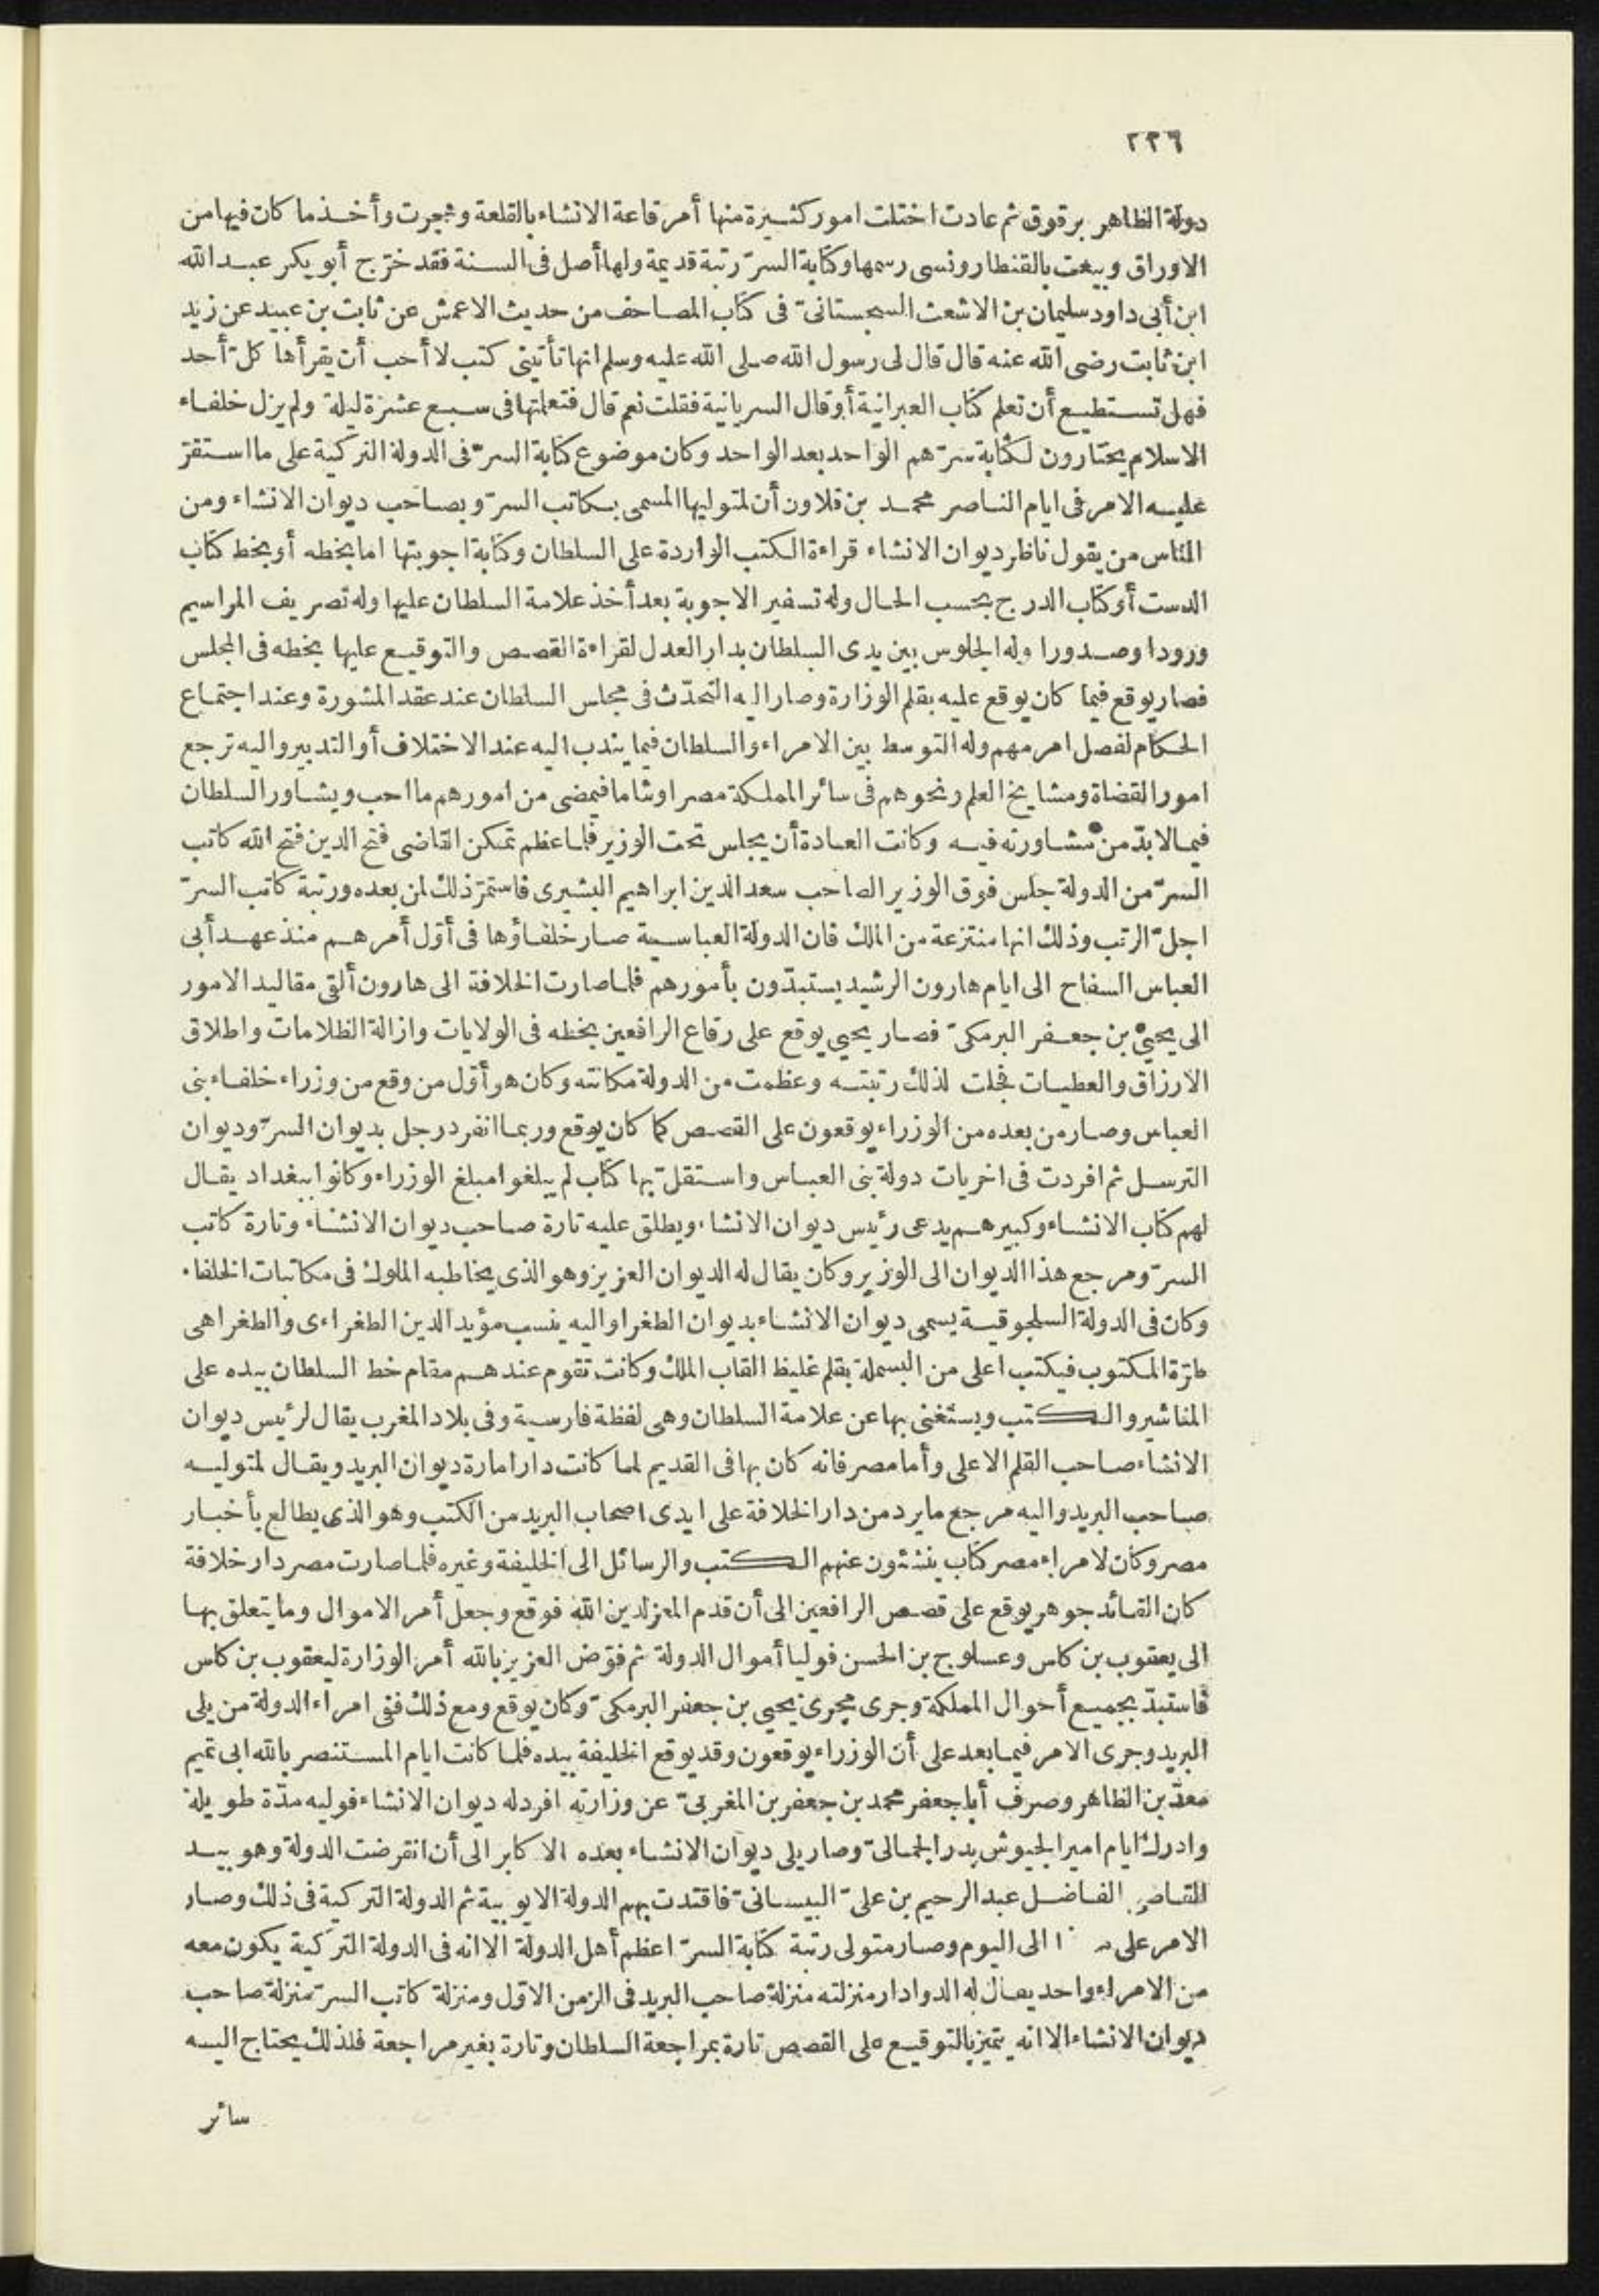 ٢٢٦
دولة الظاهر برقوق ثم عادت اختلت امور كثيرة منها أمر قاعة الانشاء بالقلعة وهجرت وأخذ ما كان فيها من
الاوراق وبيعت بالقنطار ونسى رسمها وكتابة السرّ رتبة قديمة ولها أصل فى السنة فقد خرّج أبو بكر عبد الله
ابن أبى داود سليمان بن الاشعث السجستانىّ فى كتاب المصاحف من حديث الاعمش عن ثابت بن عبيد عن زيد
ابن ثابت رضى الله عنه قال قال لى رسول الله صلى الله عليه وسلم انها تأتينى كتب لا أحب أن يقرأها كلّ أحد
فهل تستطيع أن تعلم كتاب العبرانية أو قال السريانية فقلت نعم قال فتعلمتها فى سبع عشرة ليلة ولم يزل خلفاء
الاسلام يختارون لكتابة سرّهم الواحد بعد الواحد وكان موضوع كتابة السرّ فى الدولة التركية على ما استقرّ
عليه الامر فى ايام الناصر محمد بن قلاون أن لمتوليها المسمى بكاتب السرّ وبصاحب ديوان الانشاء ومن
الناس من يقول ناظر ديوان الانشاء قراءة الكتب الواردة على السلطان وكتابة اجوبتها اما بخطه أو بخط كتاب
الدست أو كتاب الدرج بحسب الحال وله تسفير الاجوبة بعد أخذ علامة السلطان عليها وله تصريف المراسيم
ورودا وصدورا وله الجلوس بين يدى السلطان بدار العدل لقراءة القصص والتوقيع عليها بخطه فى المجلس
فصار يوقع فيما كان يوقع عليه بقلم الوزارة وصار اليه التحدّث فى مجلس السلطان عند عقد المشورة وعند اجتماع
الحكام لفصل امر مهم وله التوسط بين الامراء والسلطان فيما يندب اليه عند الاختلاف أو التدبير واليه ترجع
امور القضاة ومشايخ العلم ونحوهم فى سائر المملكة مصرا وشاما فيمضى من امورهم ما احب ويشاور السلطان
فيما لابدّ من مشاورته فيه وكانت العادة أن يجلس تحت الوزير فلما عظم تمكن القاضى فتح الدين فتح الله كاتب
السرّ من الدولة جلس فوق الوزير الصاحب سعد الدين ابراهيم البشيرى فاستمرّ ذلك لمن بعده ورتبة كاتب السرّ
اجلّ الرتب وذلك انها منتزعة من الملك فان الدولة العباسية صار خلفاؤها فى أوّل أمرهم منذ عهد أبى
العباس السفاح الى ايام هارون الرشيد يستبدّون بأمورهم فلما صارت الخلافة الى هارون ألقى مقاليد الامور
الى يحيى بن جعفر البرمكىّ فصار يحيى يوقع على رقاع الرافعين بخطه فى الولايات وازالة الظلامات واطلاق
الارزاق والعطيات فجلت لذلك رتبته وعظمت من الدولة مكانته وكان هو أوّل من وقع من وزراء خلفاء بنى
العباس وصار من بعده من الوزراء يوقعون على القصص كما كان يوقع وربما انفرد رجل بديوان السرّ وديوان
الترسل ثم افردت فى اخريات دولة بنى العباس واستقلّ بها كتاب لم يبلغوا مبلغ الوزراء وكانوا ببغداد يقال
لهم كتاب الانشاء وكبيرهم يدعى رئيس ديوان الانشاء ويطلق عليه تارة صاحب ديوان الانشاء وتارة كاتب
السرّ ومرجع هذا الديوان الى الوزير وكان يقال له الديوان العزيز وهو الذى يخاطبه الملوك فى مكاتبات الخلفاء
وكان فى الدولة السلجوقية يسمى ديوان الانشاء بديوان الطغرا واليه ينسب مؤيد الدين الطغراءى والطغرا هى
طرّة المكتوب فيكتب اعلى من البسملة بقلم غليظ القاب الملك وكانت تقوم عندهم مقام خط السلطان بيده على
المناشير والكتب ويستغنى بها عن علامة السلطان وهى لفظة فارسية وفى بلاد المغرب يقال لرئيس ديوان
الانشاء صاحب القلم الاعلى وأما مصر فانه كان بها فى القديم لما كانت دار امارة ديوان البريد ويقال لمتوليه
صاحب البريد واليه مرجع ما يرد من دار الخلافة على ايدى اصحاب البريد من الكتب وهو الذى يطالع بأخبار
مصر وكان لامراء مصر كتاب ينشئون عنهم الكتب والرسائل الى الخليفة وغيره فلما صارت مصر دار خلافة
كان القائد جوهر يوقع على قصص الرافعين الى أن قدم المعز لدين الله فوقع وجعل أمر الاموال وما يتعلق بها
الى يعقوب بن كلس وعسلوج بن الحسن فوليا أموال الدولة ثم فوّض العزيز بالله أمر الوزارة ليعقوب بن كلس
فاستبدّ بجميع أحوال المملكة وجرى مجرى يحيى بن جعفر البرمكىّ وكان يوقع ومع ذلك ففى امراء الدولة من يلى
البريد وجرى الامر فيما بعد على أن الوزراء يوقعون وقد يوقع الخليفة بيده فلما كانت ايام المستنصر بالله ابى تميم
معدّ بن الظاهر وصرف أبا جعفر محمد بن جعفر بن المغربىّ عن وزارته افرد له ديوان الانشاء فوليه مدّة طويلة
وادرك ايام امير الجيوش بدر الجمالىّ وصار يلى ديوان الانشاء بعده الاكابر الى أن انقرضت الدولة وهو بيد
القاضى الفاضل عبد الرحيم بن علىّ البيسانىّ فاقتدت بهم الدولة الايوبية ثم الدولة التركية فى ذلك وصار
الامر على الى اليوم وصار متولى رتبة كتابة السرّ اعظم أهل الدولة الا انه فى الدولة التركية يكون معه
من الامراء واحد يقال له الدوادار منزلته منزلة صاحب البريد فى الزمن الاوّل ومنزلة كاتب السرّ منزلة صاحب
ديوان الانشاء الا انه يتميز بالتوقيع على القصص تارة بمراجعة السلطان وتارة بغير مراجعة فلذلك يحتاج اليه
سائر